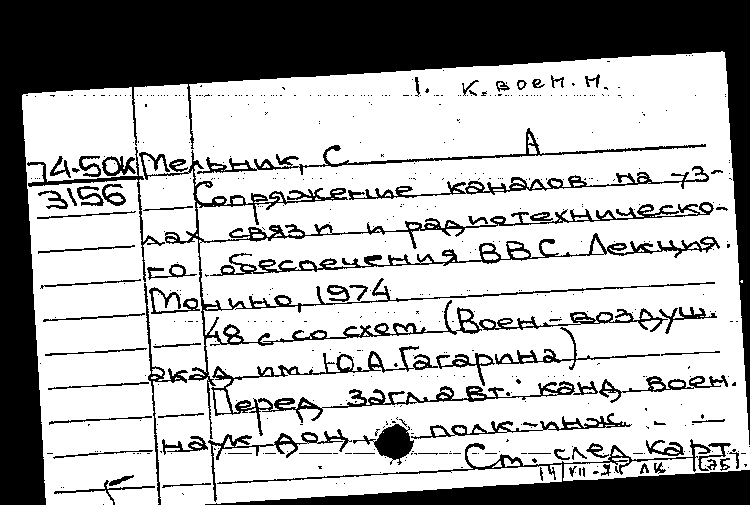 1. к. воен. н.
А
74-50к Мельник, С
3156 Сопряжение каналов на уз-
лах связи и радиотехническо-
го обеспечения ВВС. Лекция.
Монино, 1974.
48 с. со схем. (Воен.-воздуш.
акад. им. Ю.А. Гагарина)
Перед загл. авт.: канд. воен.
наук, доц., полк.-инж.
См. след. карт.
14/VII-74 ЛК [75].